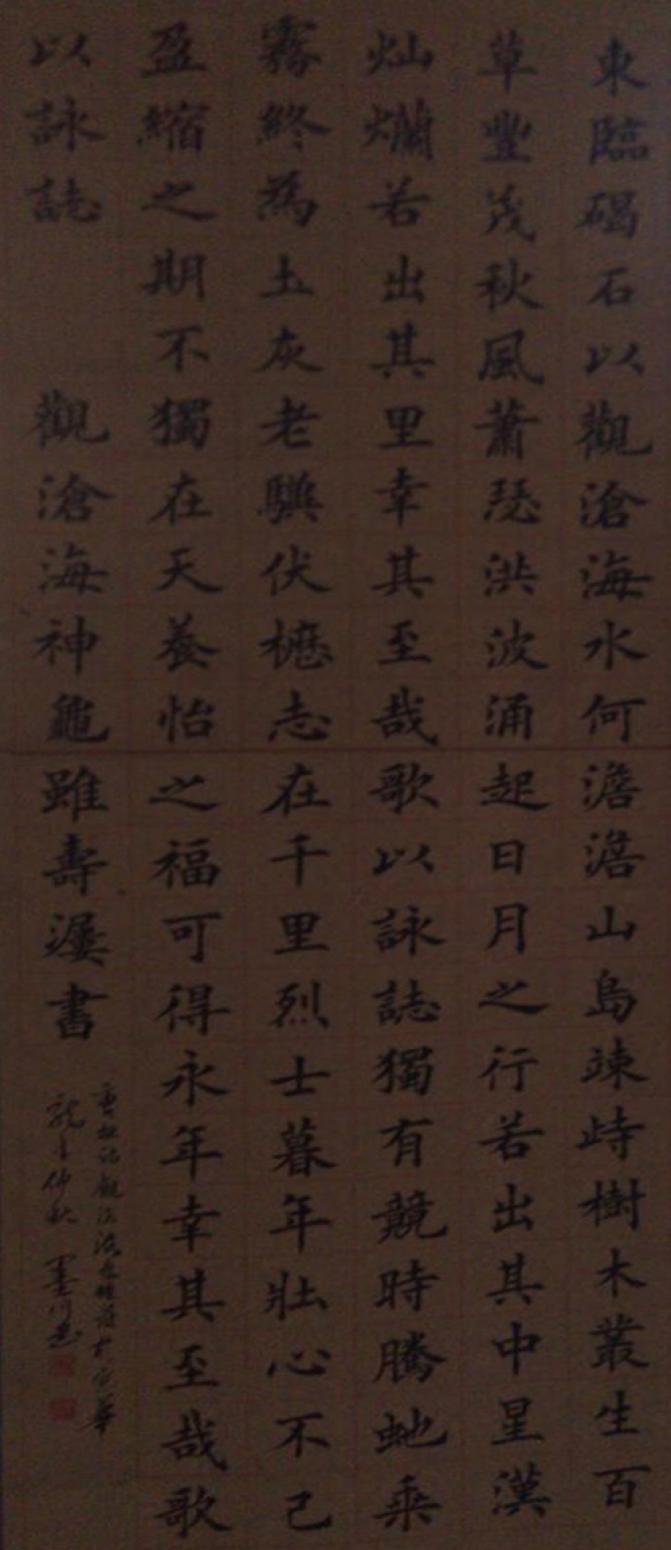 東臨碣石以觀滄海水何澹澹山島竦峙樹木叢生百
草豐茂秋風蕭瑟洪波涌起日月之行若出其中星漢
灿爛若出其里幸其至哉歌以詠誌獨有競時騰虵乘
霧終為土灰老驥伏櫪志在千里烈士暮年壯心不己
盈縮之期不獨在天養怡之福可得永年幸其至哉歌
以詠誌 觀滄海神龜雖壽書
龍年仲秋